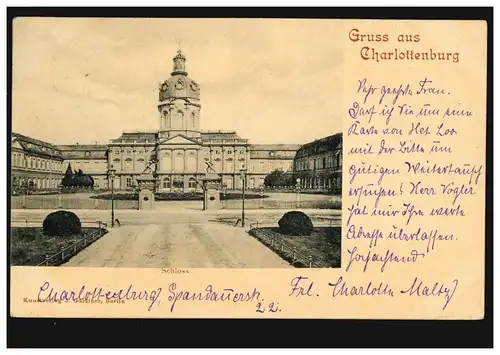 Gruss aus
Charlottenburg
Sehr geehrte Frau.
Darf ich Sie um eine
Karte von Het Loo
mit der Bitte um
gütigen Weitertausch
ersuchen! Herr Vogler
hat mir Ihre werte
Adresse überlassen.
Hochachtend
Schloss
Charlottenburg, Spandauerstr.
22.
Frl. Charlotte Maltz
Berlin